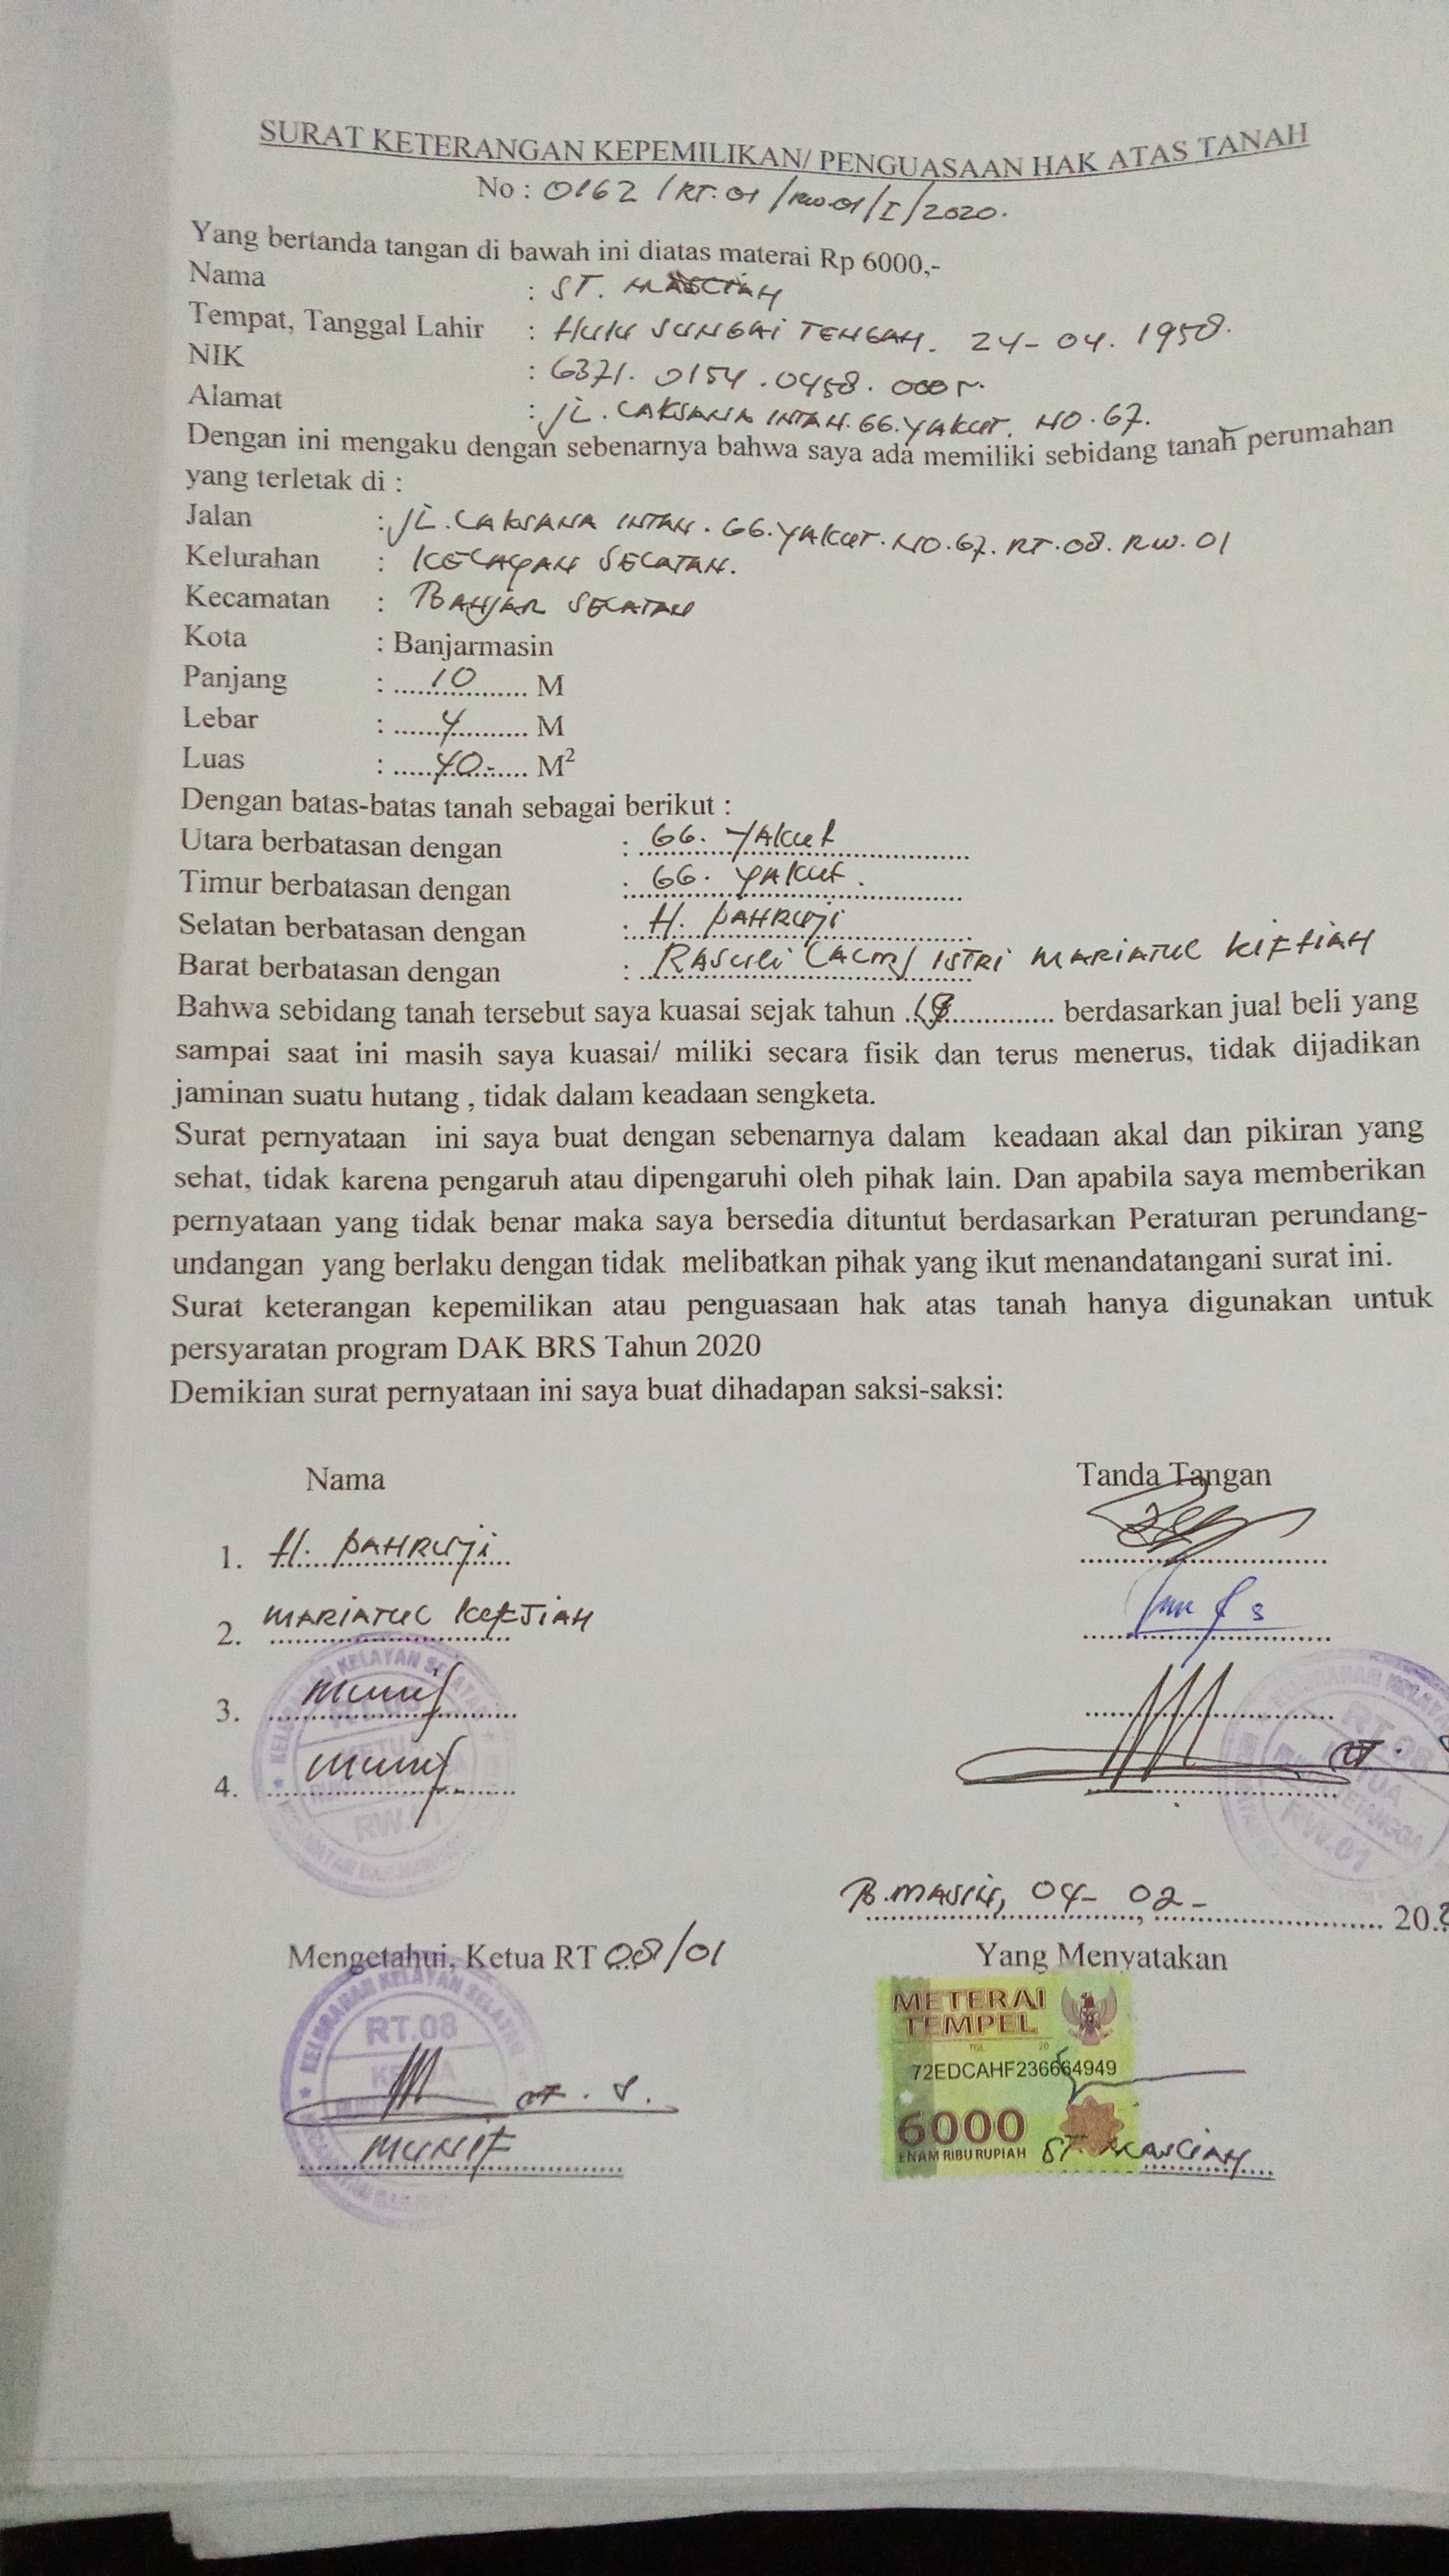 SURAT KETERANGAN KEPEMILIKAN/ PENGUASAAN HAK ATAS TANAH
No : 0162 / RT. 01 / RW. 01 / I / 2020.
Yang bertanda tangan di bawah ini diatas materai Rp 6000,-
Nama : ST.
Tempat, Tanggal Lahir : HULU SUNGAI TENGAH. 24-04. 1958.
NIK : 6371. 0154 .0458.
Alamat : JL. LAKSANA INTAN. GG. YAKUT. NO. 67.
Dengan ini mengaku dengan sebenarnya bahwa saya ada memiliki sebidang tanah perumahan
yang terletak di :
Jalan : JL. LAKSANA INTAN. GG. YAKUT. NO. 67. RT. 08. RW. 01
Kelurahan : KELAYAN SELATAN.
Kecamatan : BANJAR SELATAN
Kota : Banjarmasin
Panjang : 10 M
Lebar : 4 M
Luas : 40.- M²
Dengan batas-batas tanah sebagai berikut :
Utara berbatasan dengan : GG. YAKUT
Timur berbatasan dengan : GG. YAKUT.
Selatan berbatasan dengan : H. PAHRUJI
Barat berbatasan dengan : RASULI (ALM) ISTRI MARIATUL KIFTIAH
Bahwa sebidang tanah tersebut saya kuasai sejak tahun berdasarkan jual beli yang
sampai saat ini masih saya kuasai/ miliki secara fisik dan terus menerus, tidak dijadikan
jaminan suatu hutang , tidak dalam keadaan sengketa.
Surat pernyataan ini saya buat dengan sebenarnya dalam keadaan akal dan pikiran yang
sehat, tidak karena pengaruh atau dipengaruhi oleh pihak lain. Dan apabila saya memberikan
pernyataan yang tidak benar maka saya bersedia dituntut berdasarkan Peraturan perundang-
undangan yang berlaku dengan tidak melibatkan pihak yang ikut menandatangani surat ini.
Surat keterangan kepemilikan atau penguasaan hak atas tanah hanya digunakan untuk
persyaratan program DAK BRS Tahun 2020
Demikian surat pernyataan ini saya buat dihadapan saksi-saksi:
Nama Tanda Tangan
1. H. PAHRUJI
2. MARIATUL KIFTIAH
3. Munif
4. Munif
RT.08
KETUA
RW.01
B.MASIN, 04- 02- 20
Mengetahui, Ketua RT 08/01 Yang Menyatakan
KELURAHAN KELAYAN SELATAN
RT.08
MUNIF
METERAI
TEMPEL
72EDCAHF236664949
6000
ENAM RIBU RUPIAH
ST.